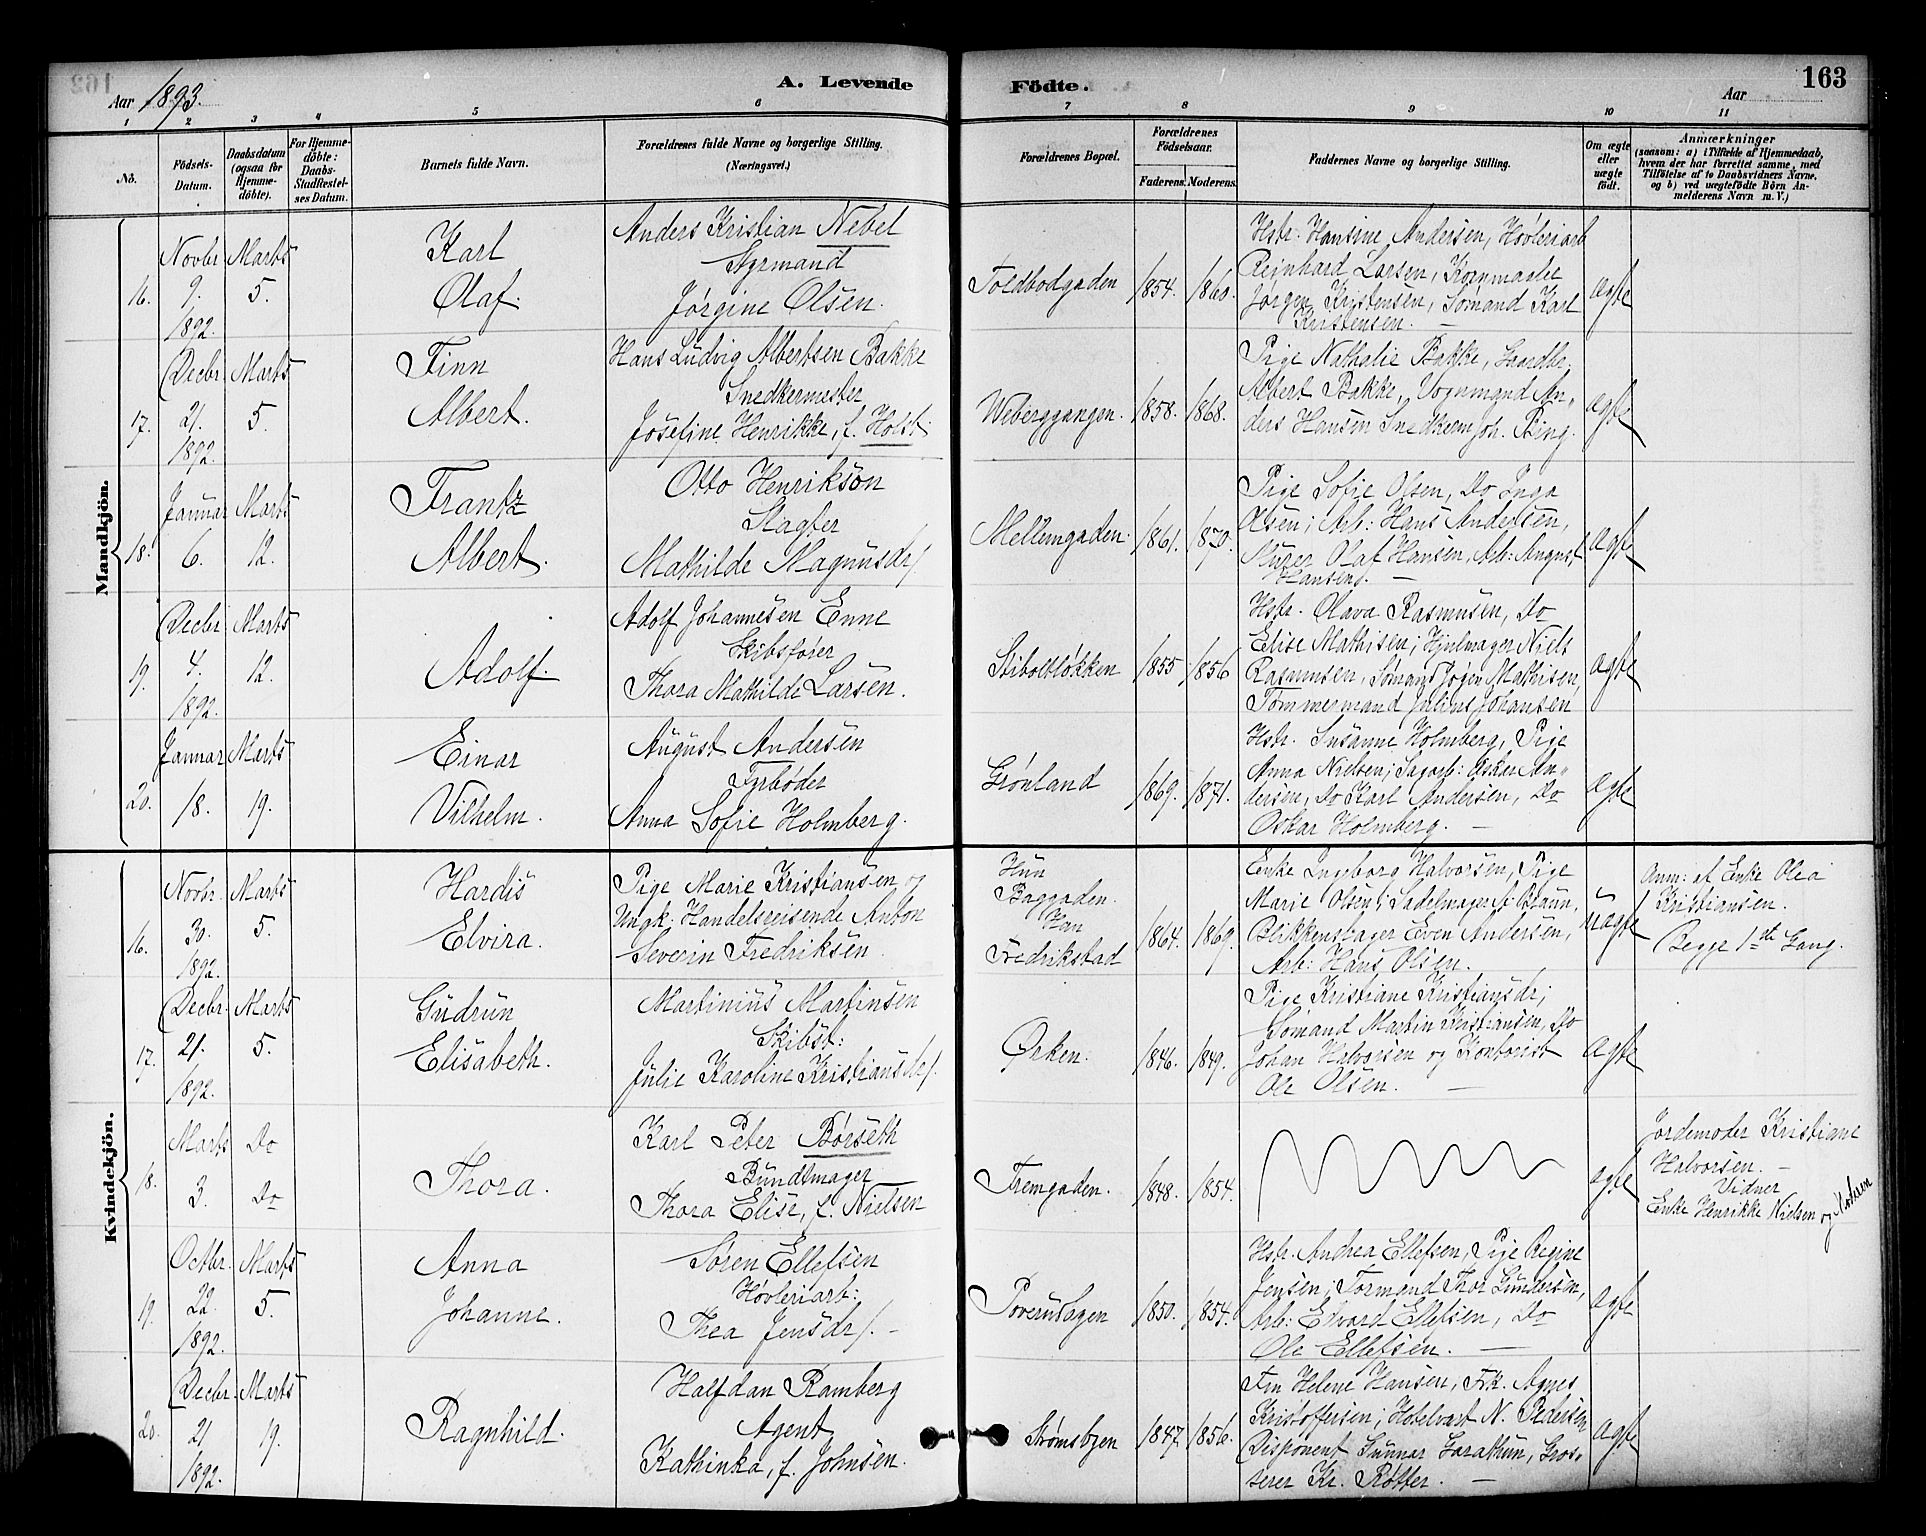 Aar 1893.
A. Levende Födte.
163
Aar
1 2 3 4 5 6 7 8 9 10 11
No.
Födsels-Datum.
Daabsdatum (ogsaa for Hjemme-döbte).
For Hjemme-döbte: Daabs-Stadfæstel-ses Datum.
Barnets fulde Navn.
Forældrenes fulde Navne og borgerlige Stilling.
(Næringsvei.)
Forældrenes Bopæl.
Forældrenes Födselsaar.
Faderens. Moderens.
Faddernes Navne og borgerlige Stilling.
Om ægte eller uægte födt.
Anmærkninger
(saasom: a) i Tilfælde af Hjemmedaab, hvem der har forrettet samme, med Tilföielse af to Daabsvidners Navne, og b) ved uægtefödte Börn An-melderens Navn m. V.)
Mandkjön.
16.
Novbr 9. 1892.
Marts 5.
Karl
Olaf.
Anders Kristian Nebel
Styrmand
Jørgine Olsen.
Toldbodgaden
1854. 1860.
Hstr. Hansine Andersen, Høvleriarb
Reinhard Larsen, Kornmaaler
Jørgen Kristensen, Sømand Karl
Kristensen. —
ægte
17.
Decbr 21. 1892.
Marts 5.
Finn
Albert.
Hans Ludvig Albertsen Bakke
Snedkermester
Josefine Henrikke, f. Holst.
Weberggangen.
1858. 1868.
Pige Nathalie Bakke, Gaardbr.
Albert Bakke, Vognmand An,
ders Hansen Snedkerm Joh. Bing.
ægte
18.
Januar 6.
Marts 12.
Frantz
Albert.
Otto Henrikson
Slagter
Mathilde Magnusdr/.
Mellemgaden.
1861. 1870.
Pige Sofie Olsen, Do Inga
Olsen; Arb: Hans Andersen,
Murer Olaf Hansen, Arb: August
Hansen. —
ægte
19.
Decbr 4. 1892.
Marts 12.
Adolf.
Adolf Johannesen Enne
Skibsfører
Thora Mathilde Larsen.
Stiboltløkken
1855 1856
Hstr. Olava Rasmusen, Do
Elise Mathisen; Hjulmager Niels
Rasmusen, Sømand Jørgen Mathisen,
Tømmermand Julius Johansen
ægte
20.
Januar 18.
Marts 19.
Einar
Vilhelm.
August Andersen
Fyrbøder
Anna Sofie Holmberg.
Grønland
1869. 1871.
Hstr. Susanne Holmberg, Pige
Anna Nielsen; Sagarb: Oskar An„
dersen, Do Karl Andersen, Do
Oskar Holmberg. —
ægte
Kvindekjön.
16.
Novbr. 30. 1892.
Marts 5.
Hardis
Elvira.
Pige Marie Kristiansen og
Ungk: Handelsreisende Anton
Severin Fredriksen
Hun
Baggaden.
Han
Fredrikstad
1864. 1869.
Enke Ingeborg Halvorsen, Pige
Marie Olsen; Sadelmager A. Braun,
Blikkenslager Even Andersen,
Arb: Hans Olsen.
uægte
Anm: af Enke Olea
Kristiansen.
Begge 1ste Gang.
17.
Decbr. 21. 1892.
Marts 5.
Gudrun
Elisabeth.
Martinius Martinsen
Skibst:
Julie Karoline Kristiansdr/.
Ørken.
1846. 1849.
Pige Kristiane Kristiansdr;
Sømand Martin Kristiansen, Do
Johan Halvorsen og Kontorist
Ole Olsen. —
ægte
18.
Marts 3.
Do Do
Thora.
Karl Peter Børseth
Bundtmager
Thora Elise, f. Nielsen
Fremgaden.
1848. 1854.
ægte
Jordemoder Kristiane
Halvorsen. —
Vidner
Enke Henrikke Nielsen og Moderen
19.
Octbr. 22. 1892.
Marts 5.
Anna
Johanne.
Søren Ellefsen
Høvleriarb:
Thea Jensdr/. —
1850. 1854.
Hstr. Andrea Ellefsen, Pige Regine
Jensen; Formand Thor Gundersen,
Arb: Edvard Ellefsen, Do
Ole Ellefsen. —
ægte
20.
Decbr. 21 1892.
Marts 19.
Ragnhild.
Halfdan Ramberg
Agent
Kathinka, f. Johnsen.
Strømsbyen
1847 1856.
Fru Helene Hansen, Frk. Agnes
Kristoffersen; Hotelvært N. Pedersen
Disponent Gunnar Garathun, Gros,
serer Kr. Røtter. —
ægte